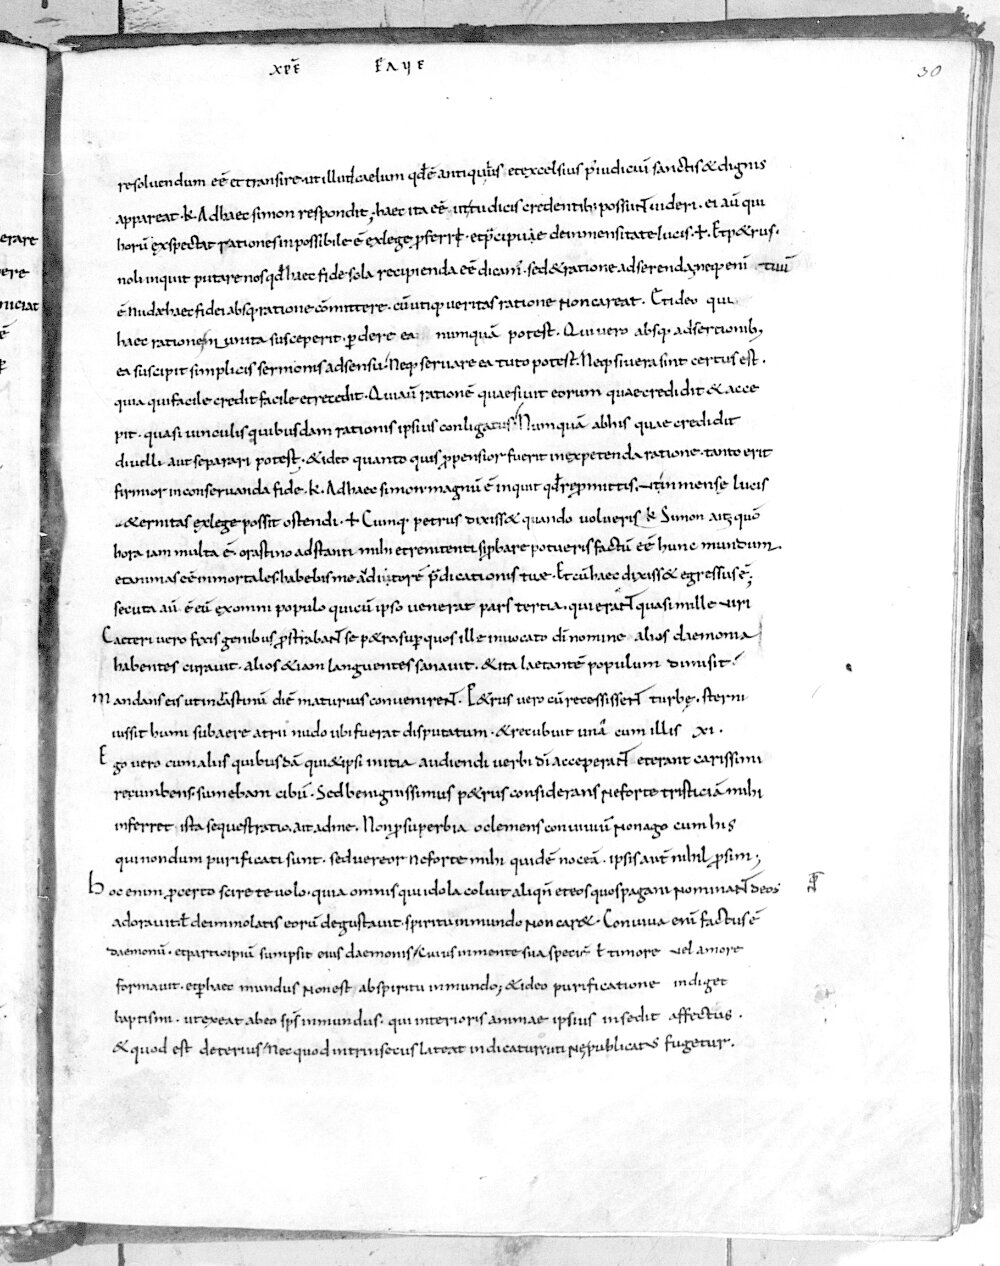 xpē ƒaye
30
resoluendum eē et transire ut illud caelum qđ ē antiquius et excelsius p̄ iudiciū sanctis & dignis
appareat · k · Ad haec simon respondit; haec ita eē ut tu dicis credentib; possunt uideri · ei aū qui
horū expectat rationes inpossibile ē ex lege p̄ferri · et p̄cipuae de inmensitate lucis · ✝ · Et p&rus ·
noli inquit putare nos qđ haec fide sola recipienda eē dicam̄ · sed & ratione adserenda neq; enī tutū
ē nuda haec fidei absq; ratione cōmittere · cū utiq; ueritas ratione non careat · Et ideo qui
haec ratione munita susceperit · ꝑdere ea numquā potest · Qui uero absq; adsertionib;
ea suscipit simplicis sermonis adsensu Neq; seruare ea tuto potest Neq; si uera sint certus est ·
quia qui facile credit facile et recedit · Qui aū rationē quaesiuit eorum quae credidit & acce
pit · quasi uinculis quibusdam rationis ipsius conligatus Numquā ab his quae credidit
diuelli aut separari potest · & ideo quanto quis ꝓpensior fuerit in expetenda ratione · tanto erit
firmior in conseruanda fide · k · Ad haec simon magnū ē inquit qđ repmittis · ut inmense lucis
&ernitas ex lege possit ostendi · ✝ Cumq; petrus dixiss& quando uolueris k Simon ait quō
hora iam multa ē · crastino adstanti mihi et renitenti si ꝓbare potueris factū eē hunc mundum ·
et animas eē inmortales habebis me adiutorē p̄dicationis tue · Et cū haec dixiss& egressus ē;
secuta aū ē eū ex omni populo qui cū ipso uenerat pars tertia · qui erant quasi mille uiri
Caeteri uero fixis genibus ꝓstrabant se p&ro super quos ille inuocato dī nomine alios daemonia
habentes curauit · alios & iam languentes sanauit · & ita laetantē populum dimisit ·
mandans eis ut in crastinū diē maturius conuenirent · P&rus uero cū recessissent turbe · sterni
iussit humi sub aere atrii nudo ubi fuerat disputatum · & recubuit una cum illis XI ·
Ego uero cum aliis quibusdā qui & ipsi initia audiendi uerbi dī acceperant et erant carissimi
recumbens sumebam cibū · Sed benignissimus p&rus considerans ne forte tristiciā mihi
inferret ista sequestratio ait ad me · Non ꝓ superbia o clemens conuiuiū non ago cum his
qui nondum purificati sunt · sed uereor ne forte mihi quidē noceā · ipsis aut̄ nihil ꝓsim;
Hoc enim ꝓ certo scire te uolo · quia omnis qui idola coluit aliqn̄ et eos quos pagani nominant deos
adorauit ł de immolatis eorū degustauit · spiritu inmundo non car& · Conuiua enī factus ē
daemonū · et participiū sumpsit eius daemonis cuius in mente sua speciē ł timore uel amore
formauit · et ꝑ haec mundus non est ab spiritu inmundo; & ideo purificatione indiget
baptismi · ut exeat ab eo sp̄s inmundus · qui interioris animae ipsius insedit affectus ·
& quod est deterius Nec quod intrinsecus lateat indicatur uti ne publicatus fugetur ·
erare
ere
nuciat